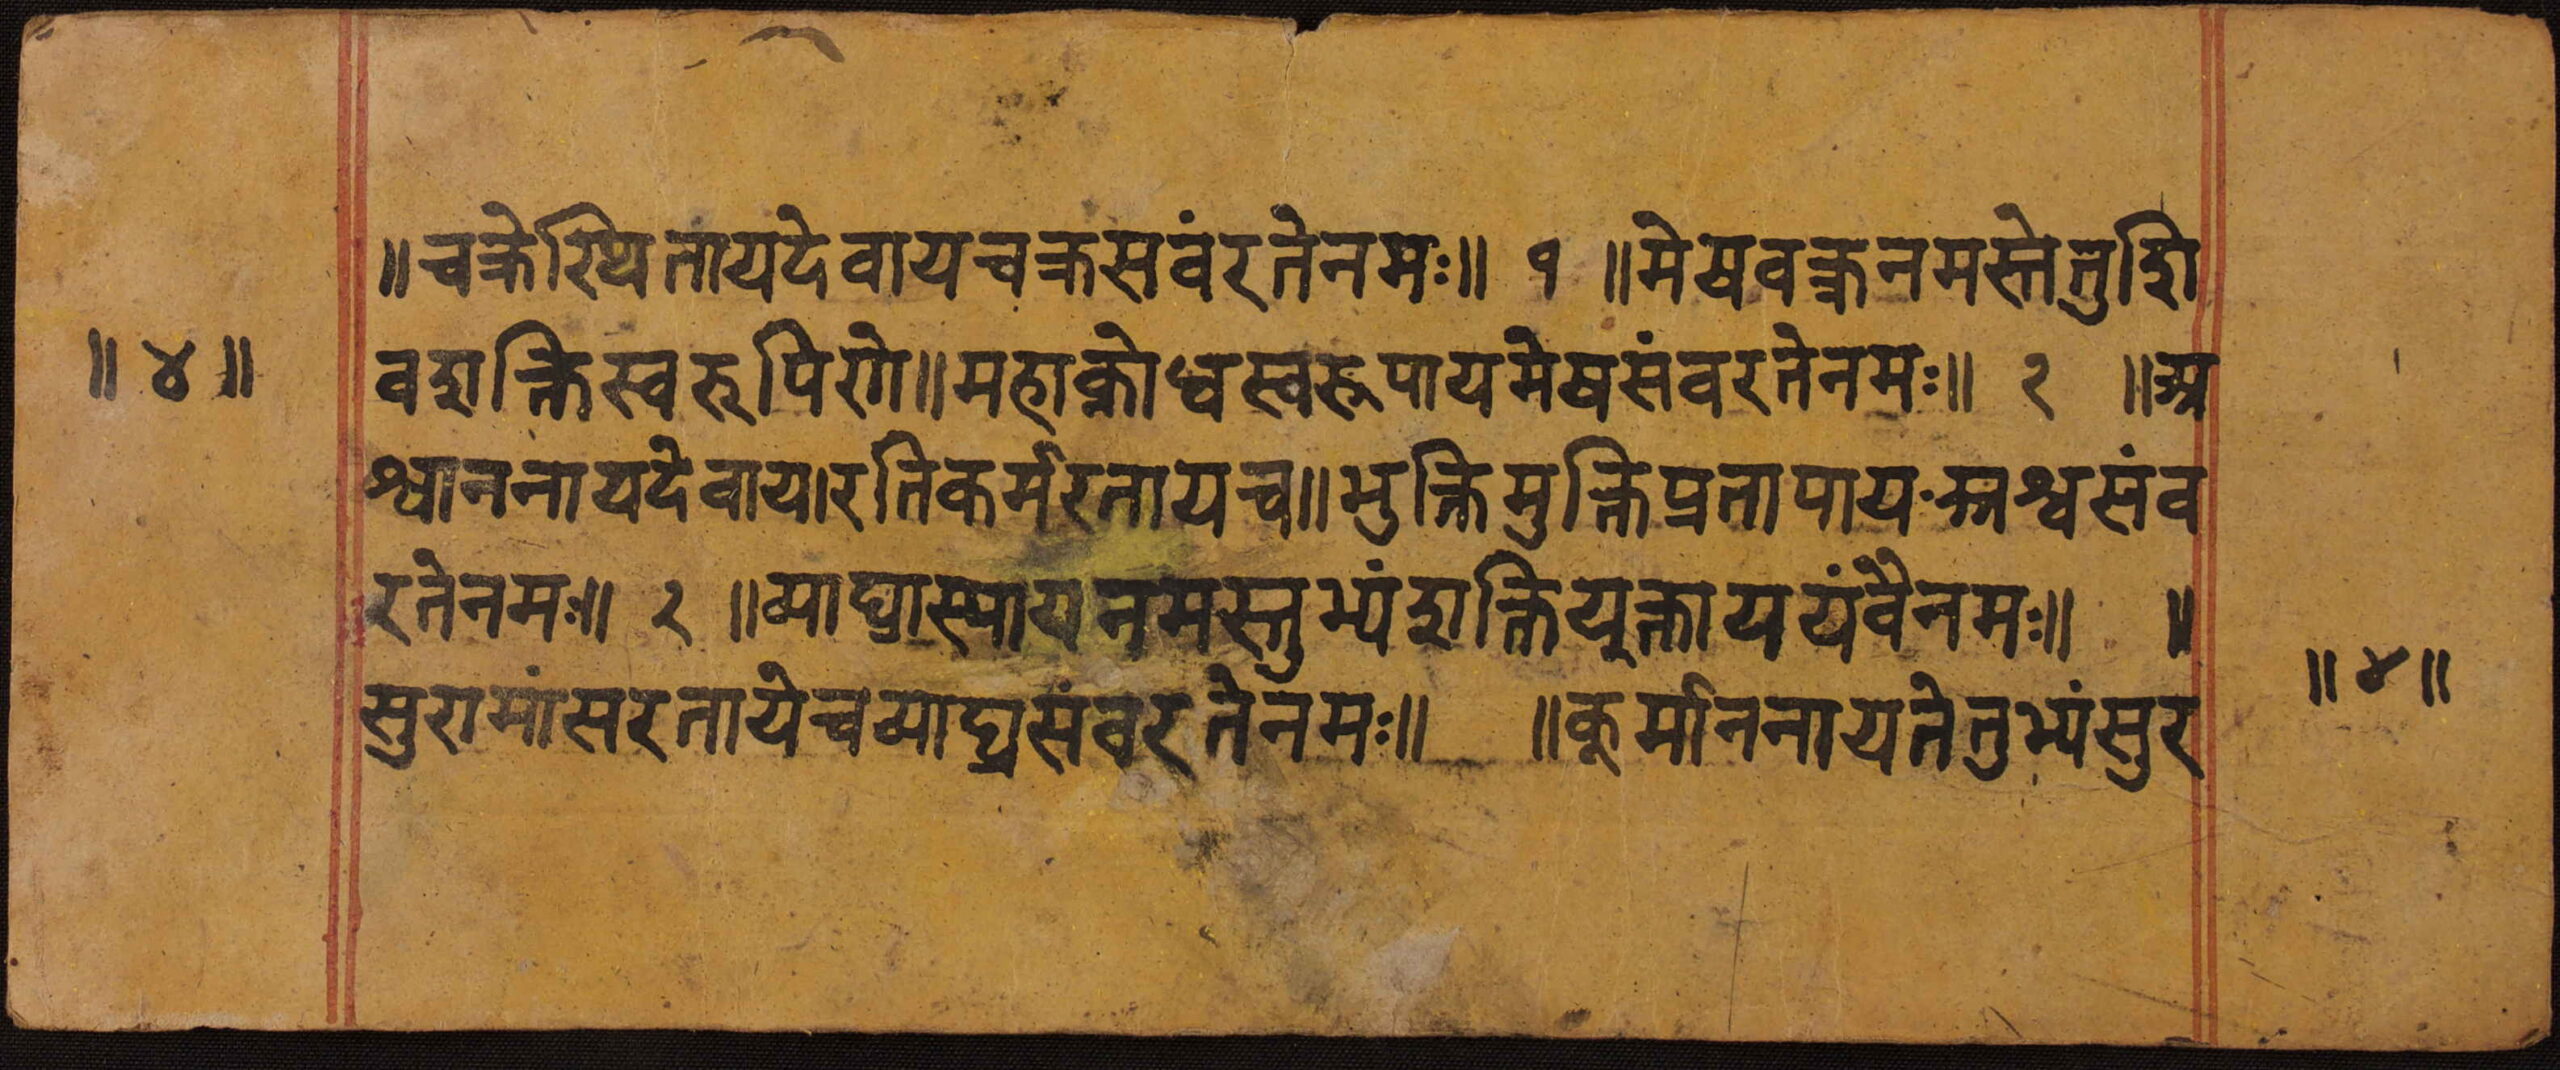 ॥चक्रेस्थितायदेवायचक्रसवंरतेनमः॥ १ ॥मेषवक्त्रनमस्तेतुशि
॥ ४ ॥
वशक्तिस्वरूपिणे॥महाक्रोधस्वरूपायमेषसंवरतेनमः॥ २ ॥अ
श्वाननायदेवाय।रतिकर्मरतायच॥भुक्तिमुक्तिप्रतापायअश्वसंव
रतेनमः॥ २ ॥व्याघ्रास्यायनमस्तुभ्यंशक्तियुक्ताययंवैनमः॥ ॥
॥ ४ ॥
सुरामांसरतायेचव्याघ्रसंवरतेनमः॥ ॥कूर्माननायतेतुभ्यंसुर